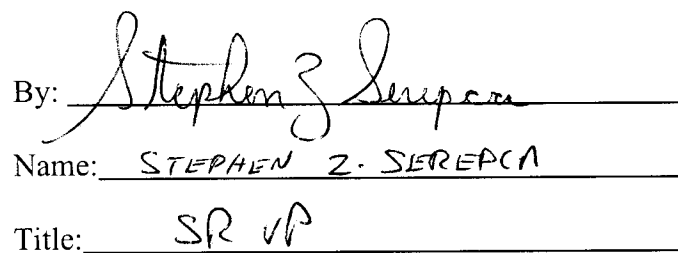 By: Stephen Z Serepca
Name: STEPHEN Z. SEREPCA
Title: SR VP